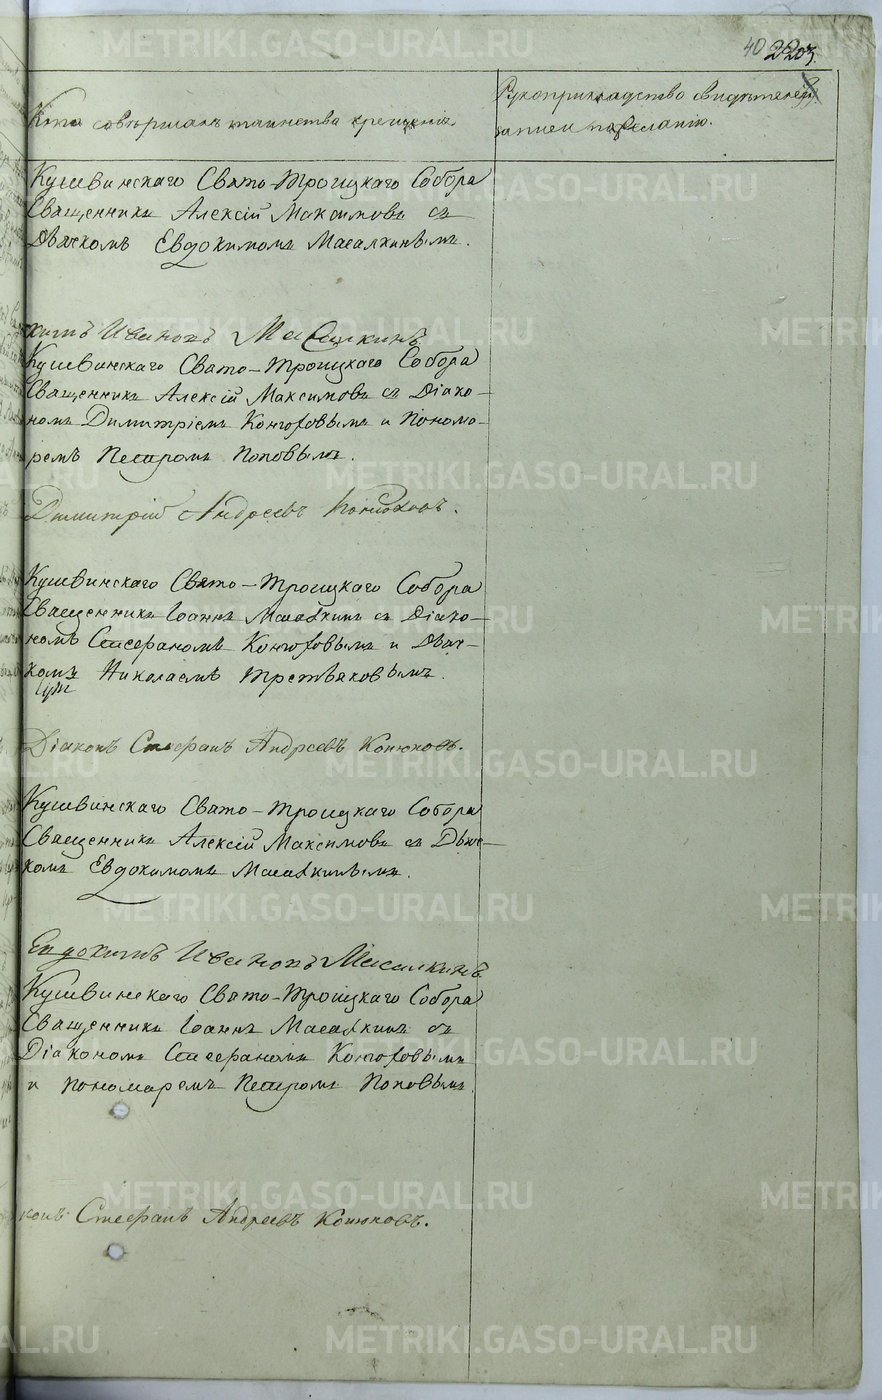 40 2203.
Кто совершалъ таинства крещенія.
Рукоприкладство свидѣтелей
записи по желанію.
Кушвинскаго Свято-Троицкаго Собора
Священникъ Алексій Максимовъ съ
Дьячкомъ Евдокимомъ Масалкинымъ.
Иванов Масалкинъ
Кушвинскаго Свято-Троицкаго Собора
Священникъ Алексій Максимовъ съ Діако-
номъ Димитріемъ Конюховымъ и Поно­ма-
ремъ Петромъ Поповымъ.
Димитрій Андреевъ Конюховъ.
Кушвинскаго Свято-Троицкаго Собора
Священникъ Іоаннъ Масалкинъ съ Діако-
номъ Стефаномъ Конюховымъ и Дьяч-
комъ Николаемъ Третьяковымъ.
Діаконъ Стефанъ Андреевъ Конюховъ.
Кушвинскаго Свято-Троицкаго Собора
Священникъ Алексій Максимовъ съ Дьяч-
комъ Евдокимомъ Масалкинымъ.
Евдокимъ Ивановъ Масалкинъ
Кушвинскаго Свято-Троицкаго Собора
Священникъ Іоаннъ Масалкинъ съ
Діакономъ Стефаномъ Конюховымъ
и Пономаремъ Петромъ Поповымъ.
конъ Стефанъ Андреевъ Конюховъ.
METRIKI.GASO-URAL.RU